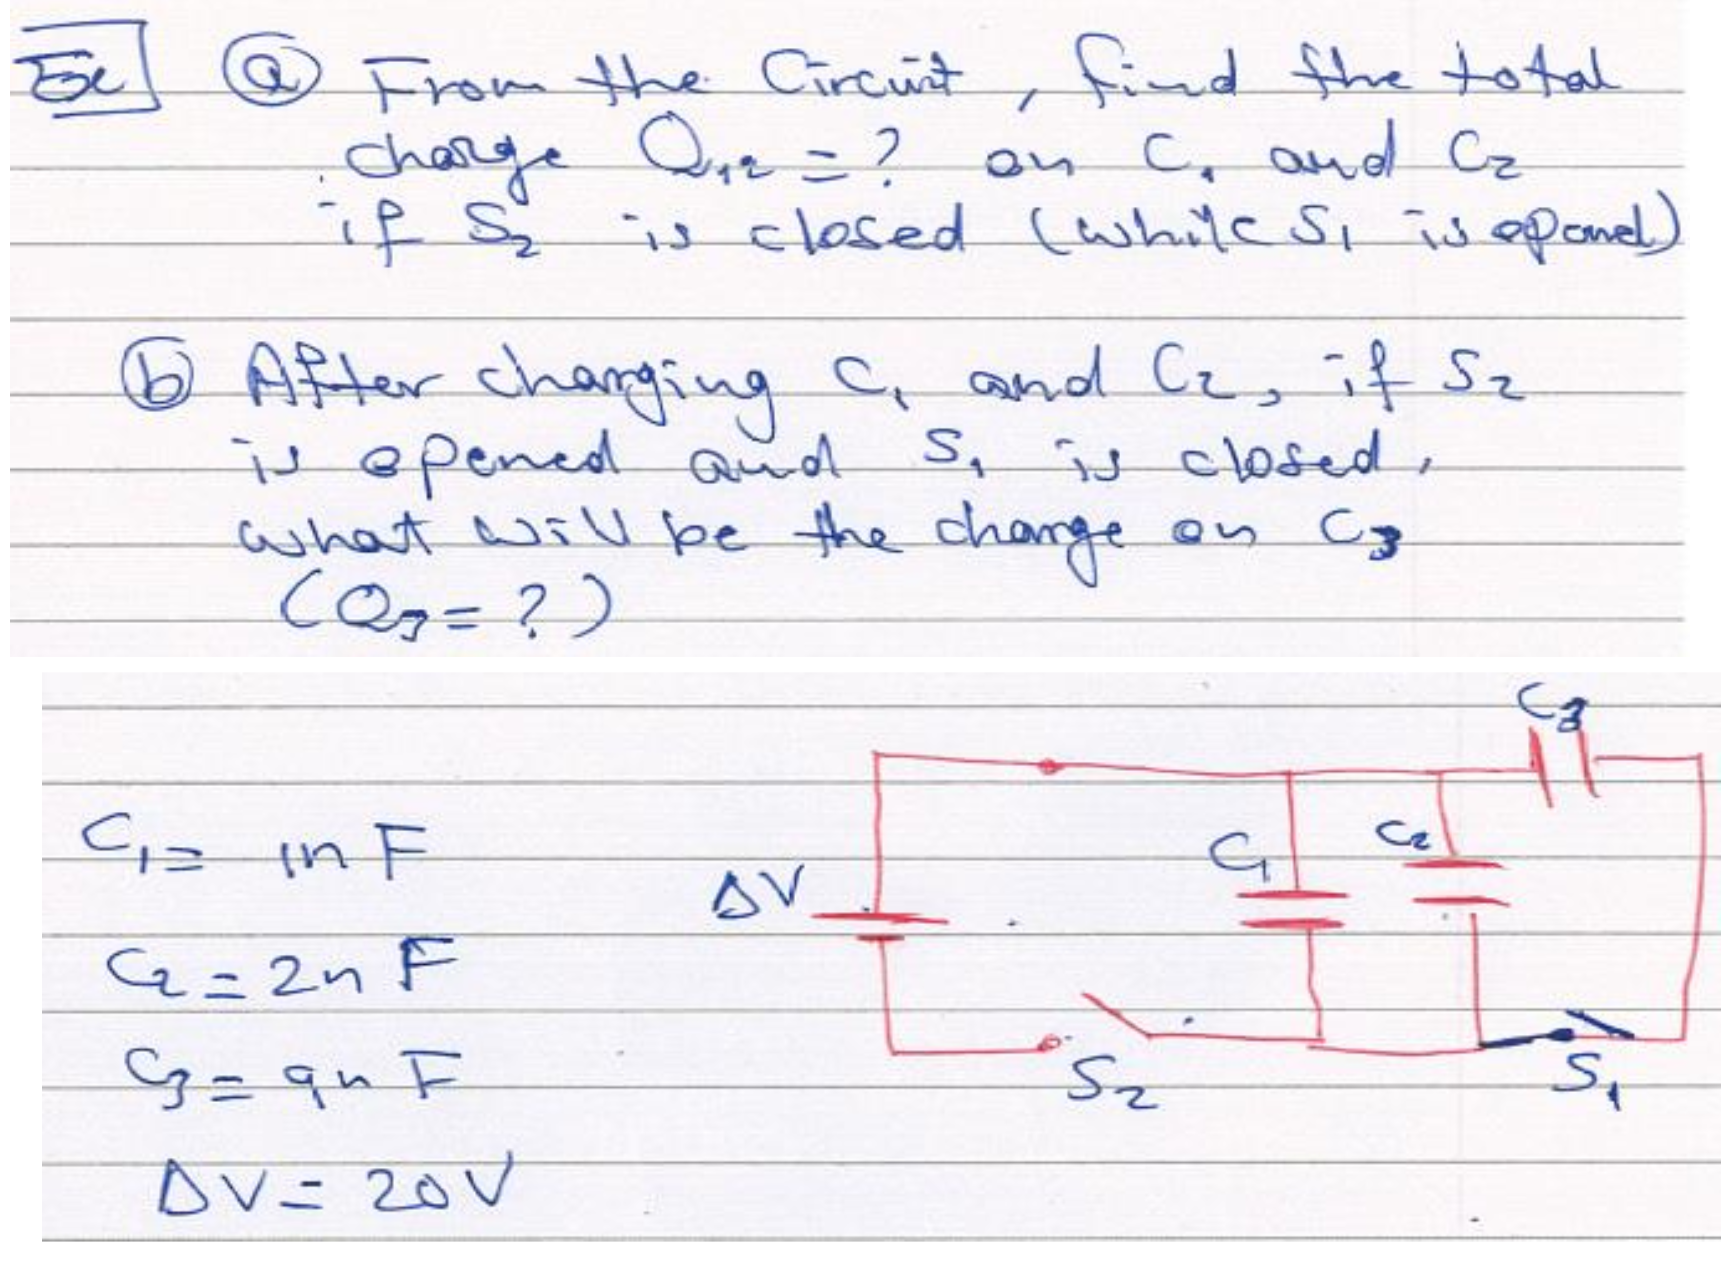 Ex ⓐ From the Circuit, find the total
charge Q₁₂ = ? on C₁ and C₂
if S₂ is closed (while S₁ is opened)
ⓑ After charging C₁ and C₂, if S₂
is opened and S₁ is closed,
what will be the charge on C₃
(Q₃ = ?)
C₃
C₁ = 1n F
C₁
C₂
ΔV
C₂ = 2n F
C₃ = 9n F
S₂
S₁
ΔV = 20V